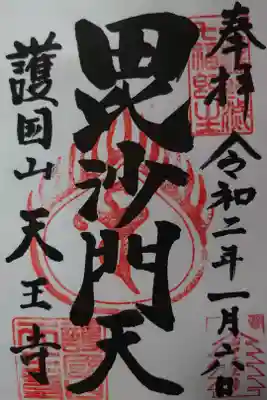 奉拝
令和二年一月六日
毘沙門天
護国山
天王寺